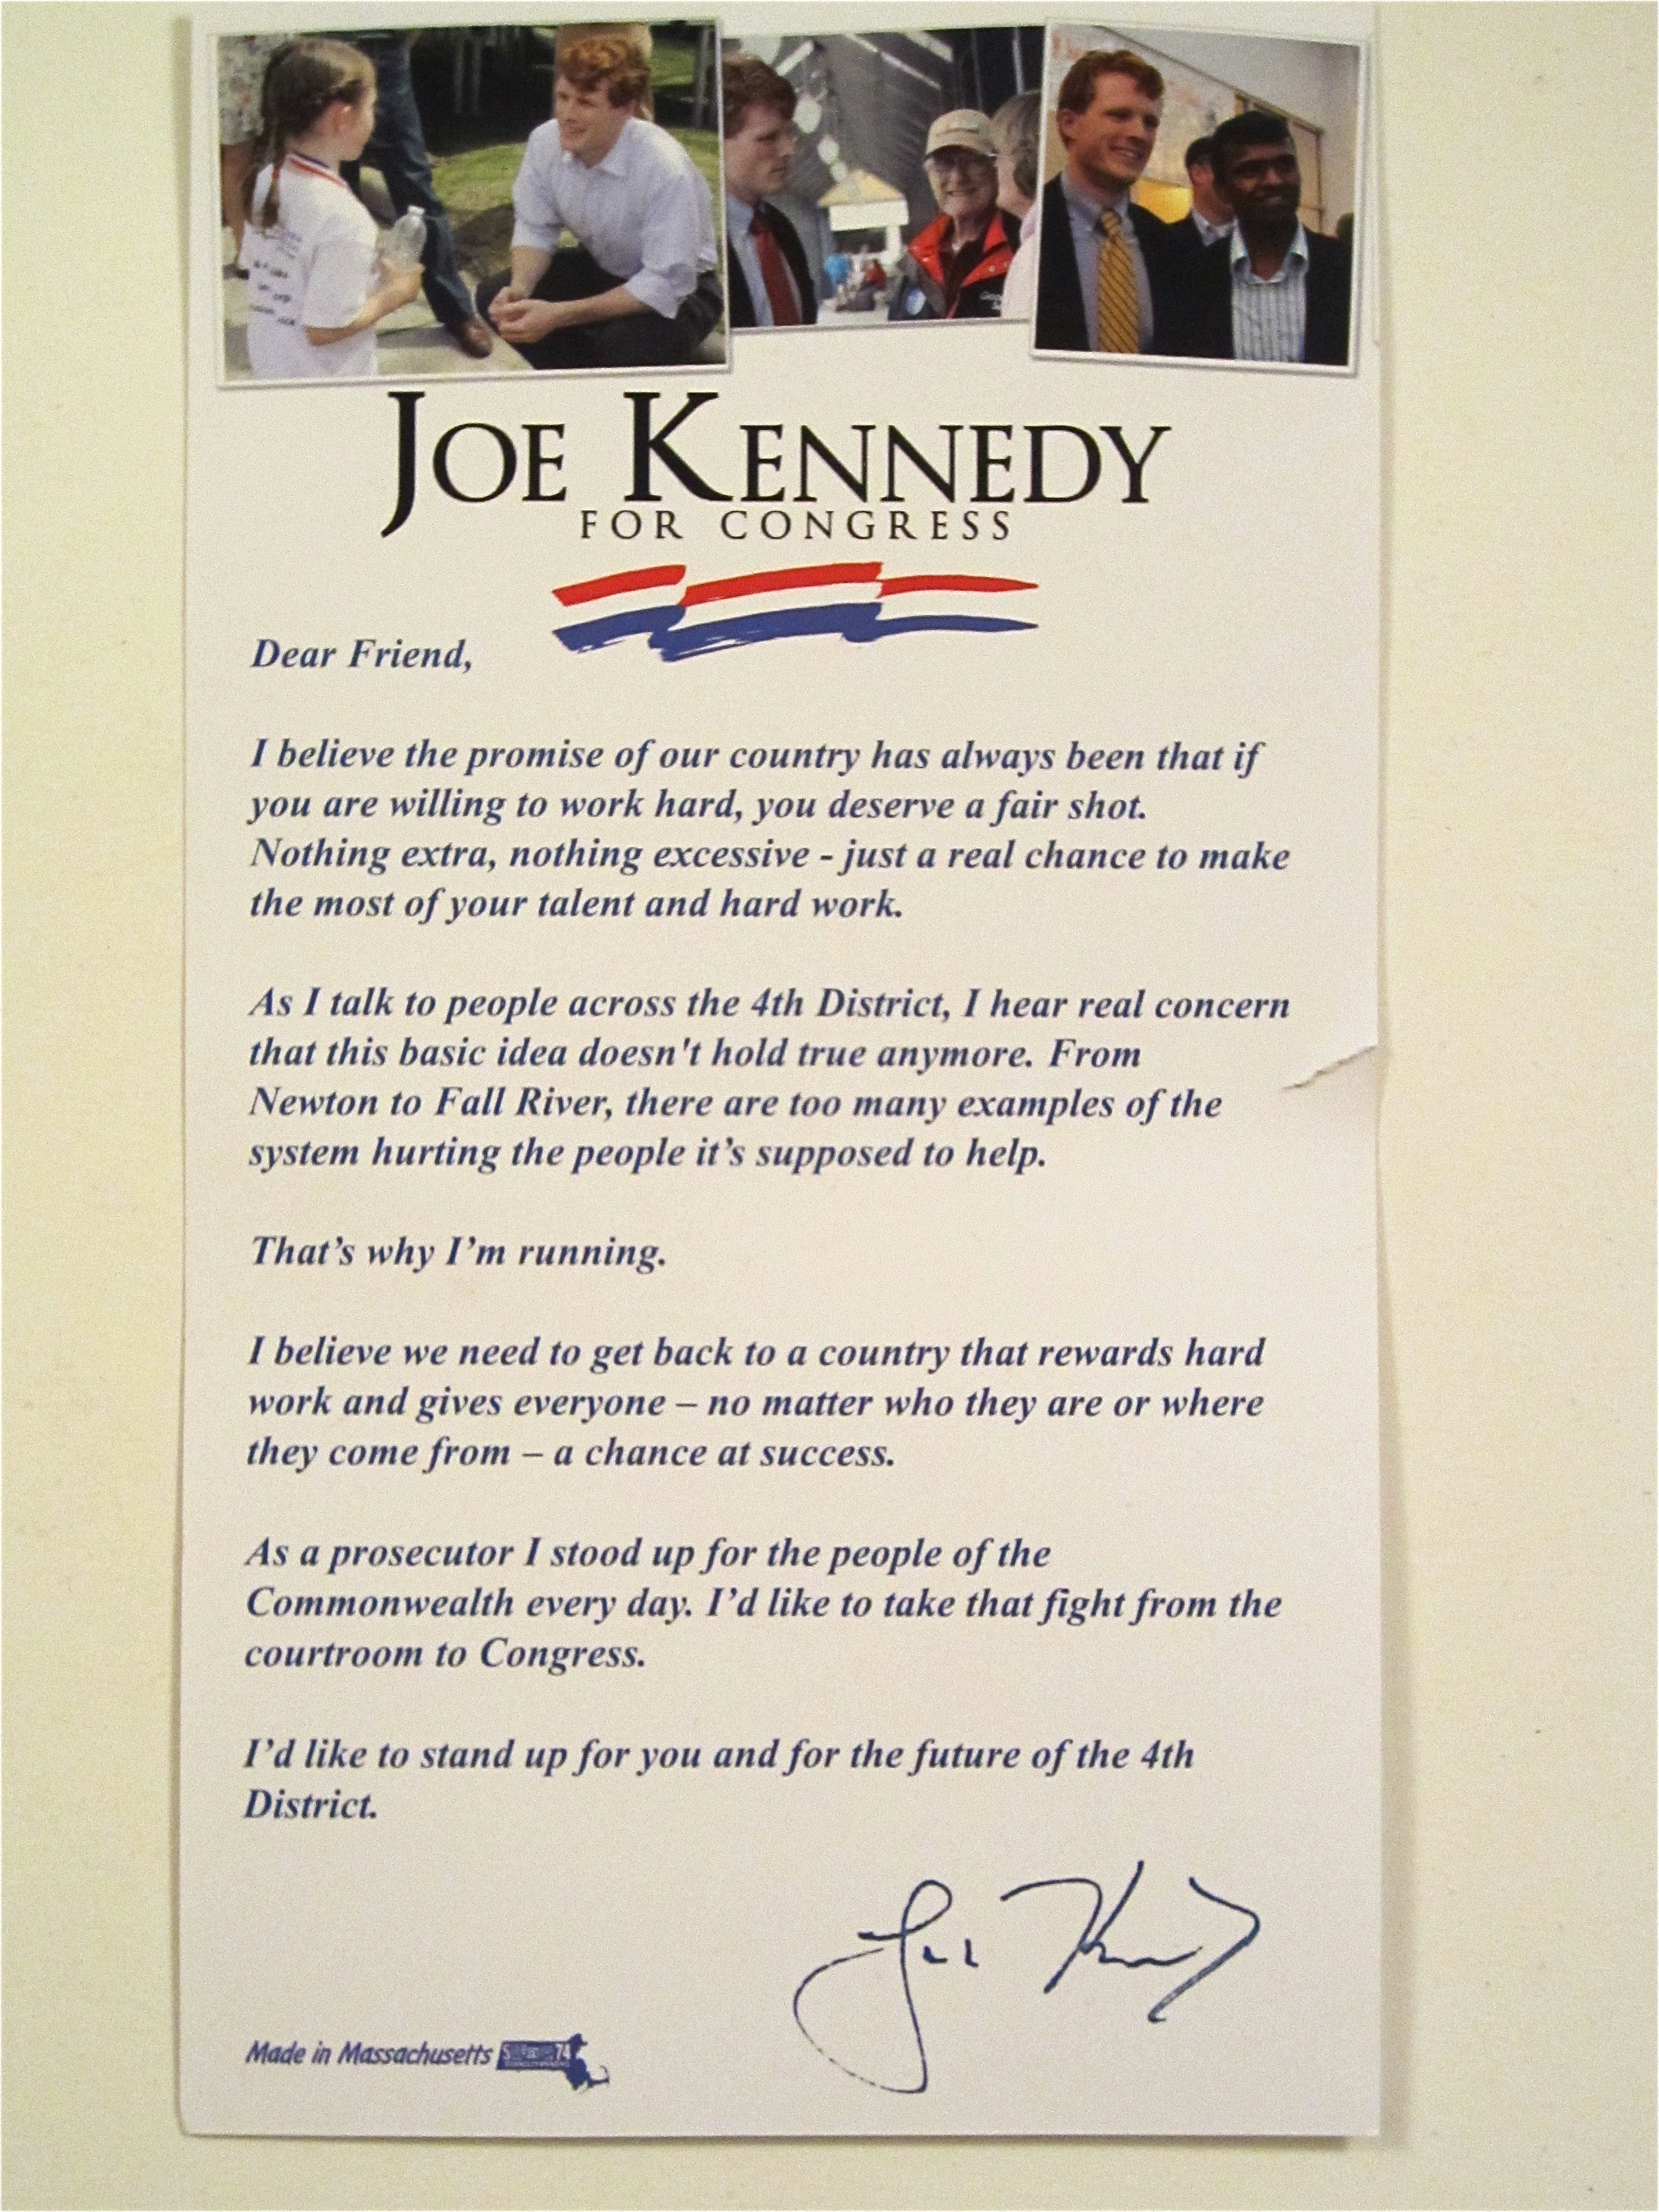 JOE KENNEDY
FOR CONGRESS
Dear Friend,
I believe the promise of our country has always been that if
you are willing to work hard, you deserve a fair shot.
Nothing extra, nothing excessive - just a real chance to make
the most of your talent and hard work.
As I talk to people across the 4th District, I hear real concern
that this basic idea doesn't hold true anymore. From
Newton to Fall River, there are too many examples of the
system hurting the people it’s supposed to help.
That’s why I’m running.
I believe we need to get back to a country that rewards hard
work and gives everyone – no matter who they are or where
they come from – a chance at success.
As a prosecutor I stood up for the people of the
Commonwealth every day. I’d like to take that fight from the
courtroom to Congress.
I’d like to stand up for you and for the future of the 4th
District.
Joe Kennedy
Made in Massachusetts